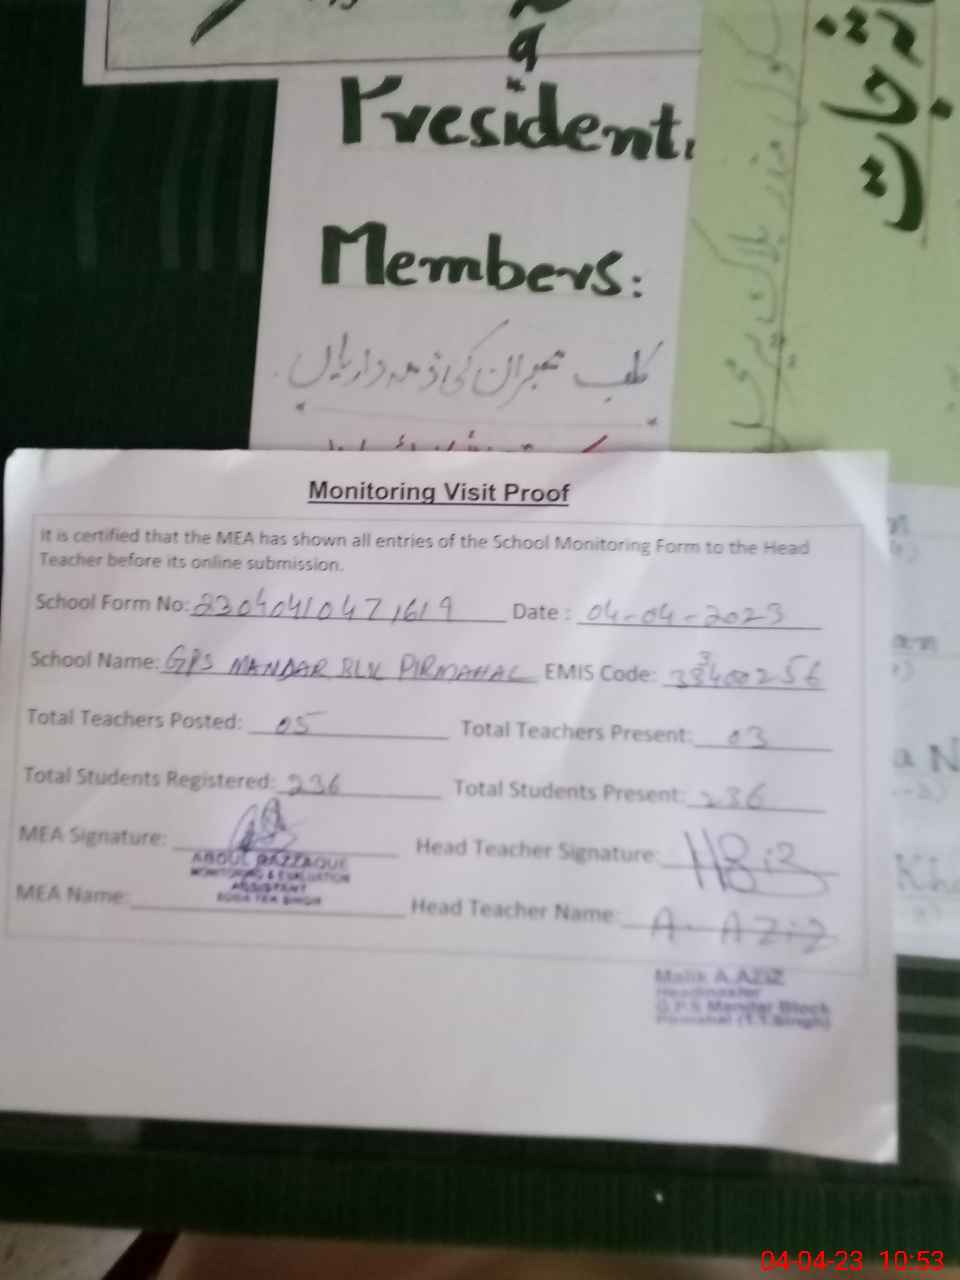 President.
Members:
کلب ممبران کی ذمہ داریاں
Monitoring Visit Proof
It is certified that the MEA has shown all entries of the School Monitoring Form to the Head
Teacher before its online submission.
School Form No: 23040410471619 Date : 04-04-2023
School Name: GPS MANDAR BLK PIRMAHAL EMIS Code: 33400256
Total Teachers Posted: 05 Total Teachers Present: 03
Total Students Registered: 236 Total Students Present: 236
MEA Signature: Head Teacher Signature:
ABDUL RAZZAQUE
MONITORING & EVALUATION
ASSISTANT
MEA Name: Head Teacher Name: A. AZiz
Malik A.AZIZ
Headmaster
G.P.S Mandar Block
Pirmahal (T.T.Singh)
04-04-23 10:53